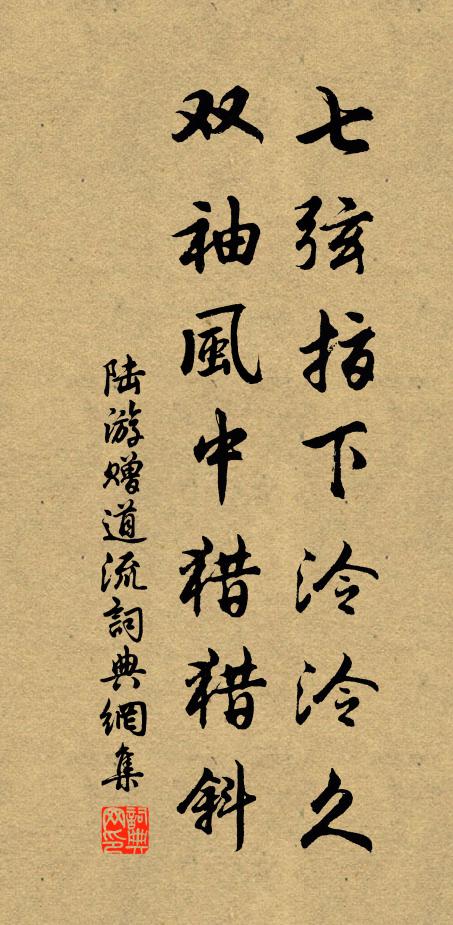 七弦指下泠泠久
双袖風中猎猎斜
陆游赠道流詞典網集
詞典网印